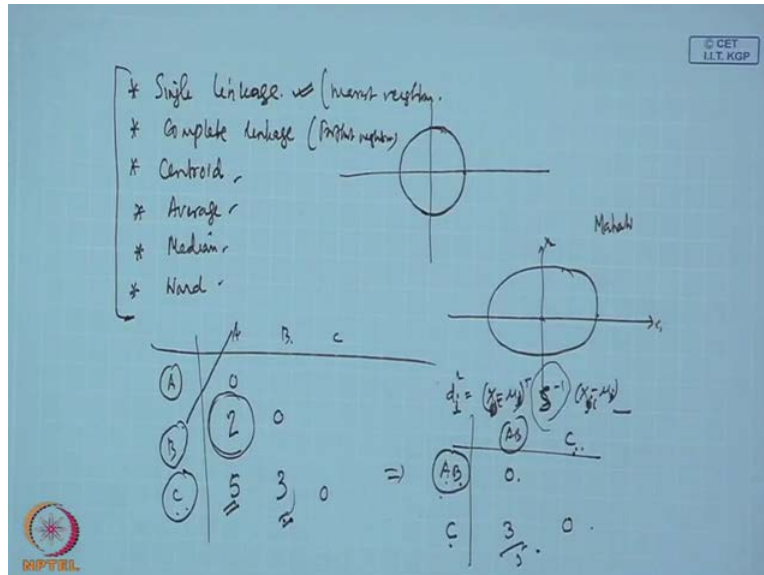 © CET
I.I.T. KGP
* Single linkage (nearest neighbor.
* Complete linkage (farthest neighbor)
* Centroid
* Average
* Median
* Ward
A B C
A 0
B 2 0
C 5 3 0
⇒
AB C
AB 0
C 3 0
5
NPTEL